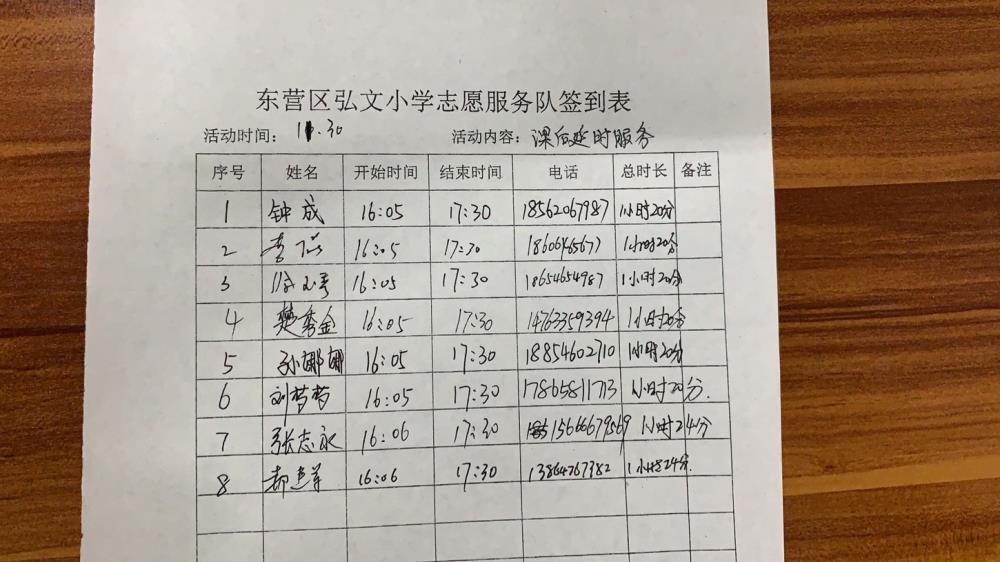 东营区弘文小学志愿服务队签到表
活动时间: 11.30 活动内容: 课后延时服务
序号 姓名 开始时间 结束时间 电话 总时长 备注
1 钟成 16:05 17:30 18562067987 1小时20分
2 李 16:05 17:30 1小时20分
3 16:05 17:30 18654654987 1小时20分
4 樊秀金 16:05 17:30 14763359394 1小时20分
5 孙娜娜 16:05 17:30 18854602710 1小时20分
6 刘梦梦 16:05 17:30 17865811713 1小时20分.
7 张志永 16:06 17:30 15666679569 1小时24分
8 16:06 17:30 13864767382 1小时24分.